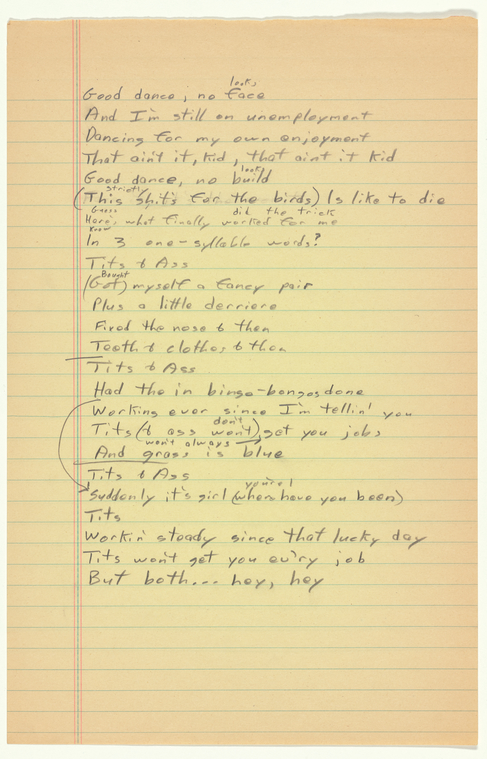 look,
Good dance, no face
And I'm still on unemployment
Dancing for my own enjoyment
That ain't it, kid, that aint it kid
look
Good dance, no build
strictly
(This sh,t's for the birds) Is like to die
Guess did the trick
Here, what finally worked for me
Know
In 3 one-syllable words?
Tits & Ass
Bought
(Got) myself a fancy pair
Plus a little derriere
Fixed the nose & then
Teeth & clothes & then
Tits & Ass
Had the in bingo-bongos done
Working ever since I'm tellin' you
don't
Tits (& ass won't) get you jobs
won't always
And grass is blue
Tits & Ass
you're!
Suddenly it's girl (where have you been)
Tits
Workin' steady since that lucky day
Tits won't get you ev'ry job
But both... hey, hey